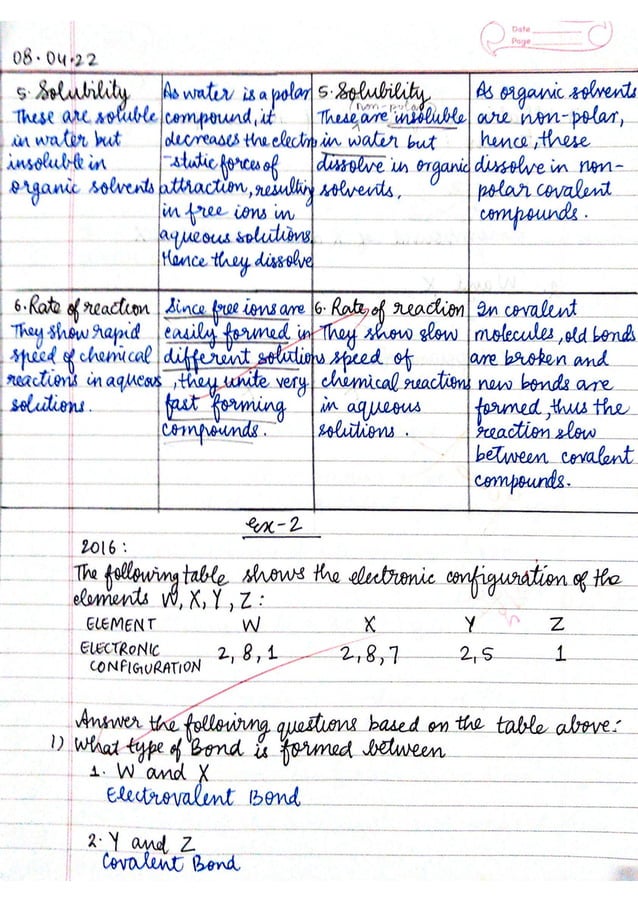 Date
Page
08.04.22
5. Solubility
These are soluble
in water but
insoluble in
organic solvents
As water is a polar
compound, it
decreases the electro
-static forces of
attraction, resulting
in free ions in
aqueous solutions.
Hence they dissolve
5. Solubility
non-polar
These are insoluble
in water but
dissolve in organic
solvents.
As organic solvents
are non-polar,
hence, these
dissolve in non-
polar covalent
compounds.
6. Rate of reaction
They show rapid
speed of chemical
reactions in aqueous
solutions.
Since free ions are
easily formed in
different solutions
, they unite very
fast forming
compounds.
6. Rate of reaction
They show slow
speed of
chemical reactions
in aqueous
solutions.
In covalent
molecules, old bonds
are broken and
new bonds are
formed, thus the
reaction slow
between covalent
compounds.
Ex-2
2016:
The following table shows the electronic configuration of the
elements W, X, Y, Z:
ELEMENT W X Y Z
ELECTRONIC
CONFIGURATION 2, 8, 1 2, 8, 7 2, 5 1
Answer the following questions based on the table above:
1) What type of Bond is formed between
1. W and X
Electrovalent Bond
2. Y and Z
Covalent Bond